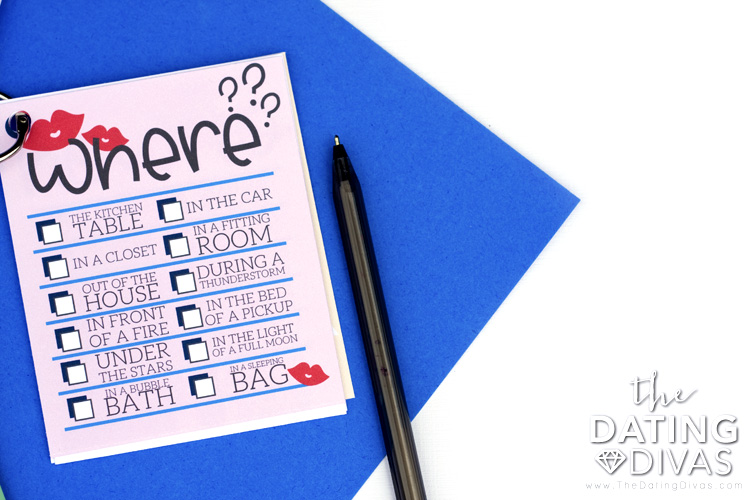 where???
THE KITCHEN
TABLE
IN THE CAR
IN A CLOSET
IN A FITTING
ROOM
OUT OF THE
HOUSE
DURING A
THUNDERSTORM
IN FRONT
OF A FIRE
IN THE BED
OF A PICKUP
UNDER
THE STARS
IN THE LIGHT
OF A FULL MOON
IN A BUBBLE
BATH
IN A SLEEPING
BAG
the
DATING
DIVAS
www.TheDaringDivas.com